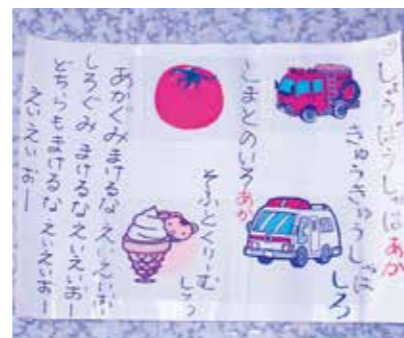 しょうぼうしゃは あか
きゅうきゅうしゃは しろ
とまとのいろ あか
そふとくりーむ しろ
あかぐみまけるな えいえいおー
しろぐみ まけるな えいえいおー
どちらもまけるな えいえいおー
えいえいおー